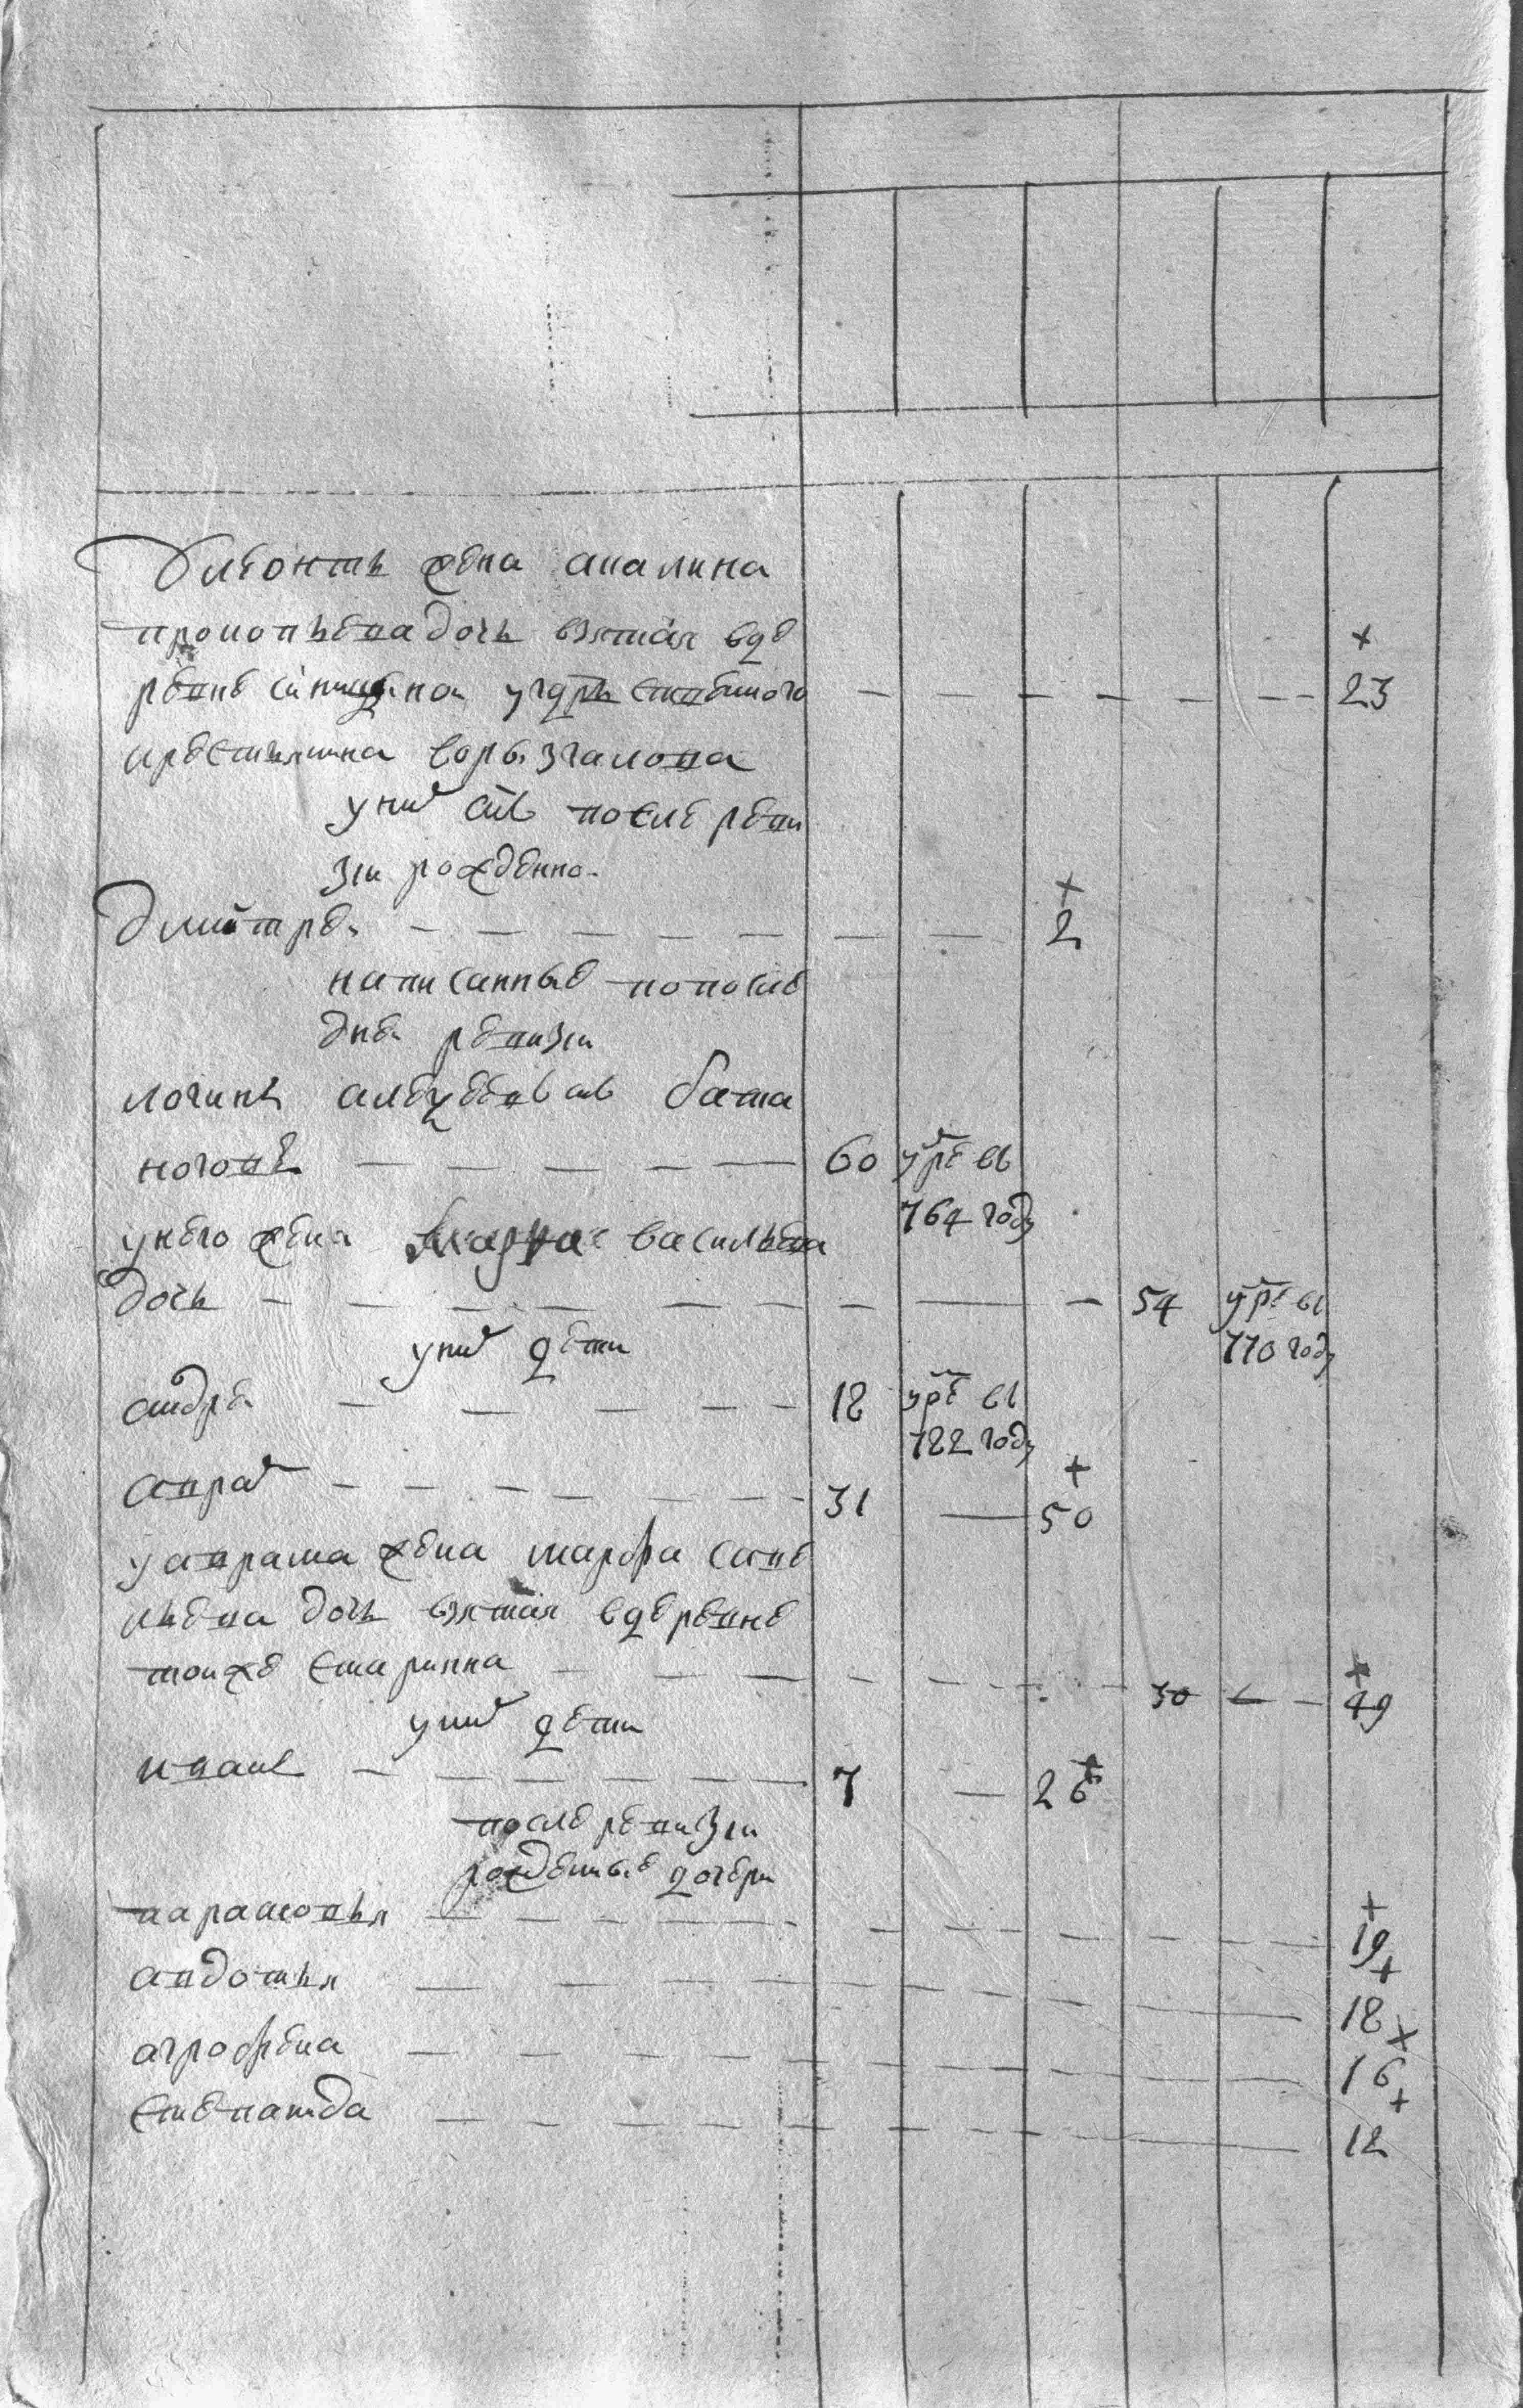 улеонтья жена акилина
прокопьева дочь взятая вде
ревне государственного +
крестьянина — — — — — 23
у них сынъ после реви
зии рожденной
дмитрей — — — — — — — + 2
написанные по после
дней ревизии
логинъ сынъ
— — — — — 60 умре въ
764 году
у него жена марья васильева
дочь — — — — — — — — — 54 умре въ
770 году
у них дети
андрей — — — — — 18 умре въ
782 году
авраамъ — — — — — — 31 — + 50
у аврама жена марфа саве
льева дочь взятая вдеревне
тойже старинная — — — — — — — 30 — — + 49
у них дети
иванъ — — — — — — 7 — 26 +
после ревизии
рожденные дочери
парасковья — — — — — — — — — + 19
авдотья — — — — — — — — + 18
агрофена — — — — — — — — + 16
степанида — — — — — — — + 12